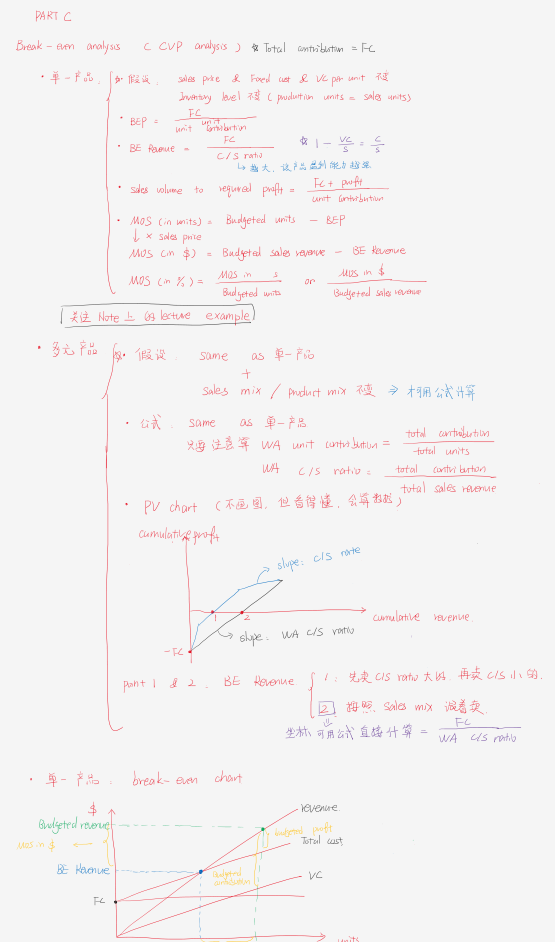 PART C
Break-even analysis (CVP analysis) ☆ Total contribution = FC
• 单一产品. ☆ 假设. sales price & Fixed cost & VC per unit 不变
Inventory level 不变 (production units = sales units)
• BEP = FC / unit contribution
• BE Revenue = FC / C/S ratio ☆ 1 - VC/S = C/S
↳ 越大, 该产品盈利能力越强
• sales volume to required profit = FC + profit / unit contribution
• MOS (in units) = Budgeted units - BEP
↓ × sales price
MOS (in $) = Budgeted sales revenue - BE Revenue
MOS (in %) = MOS in s / Budgeted units or MOS in $ / Budgeted sales revenue
关注 Note 上 的 lecture example
• 多元产品 ☆• 假设. same as 单一产品
+
sales mix / product mix 不变 ⇒ 才用公式计算
• 公式. same as 单一产品
只要注意算 WA unit contribution = total contribution / total units
WA C/S ratio = total contribution / total sales revenue
• PV chart (不画图, 但看得懂, 会算数据)
cumulative profit
slope: C/S rate
1 2 cumulative revenue.
slope: WA C/S ratio
-FC
point 1 & 2. BE Revenue { 1. 先卖 C/S ratio 大的. 再卖 C/S 小的.
2. 按照 sales mix 混着卖.
坐标, 可用公式直接计算 = FC / WA C/S ratio
• 单一产品. break-even chart
$
revenue
Budgeted revenue
budgeted profit
MOS in $ ←
Total cost
BE Revenue
Budgeted contribution
VC
FC
units